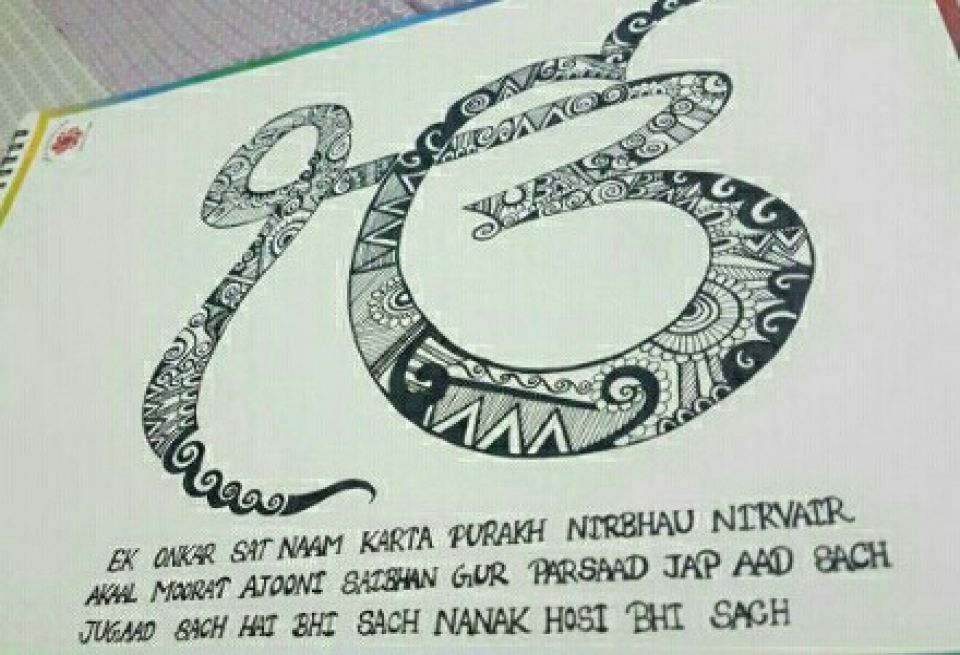 ੴ
EK ONKAR SAT NAAM KARTA PURAKH NIRBHAU NIRVAIR
AKAAL MOORAT AJOONI SAIBHAN GUR PARSAAD JAP AAD SACH
JUGAAD SACH HAI BHI SACH NANAK HOSI BHI SACH